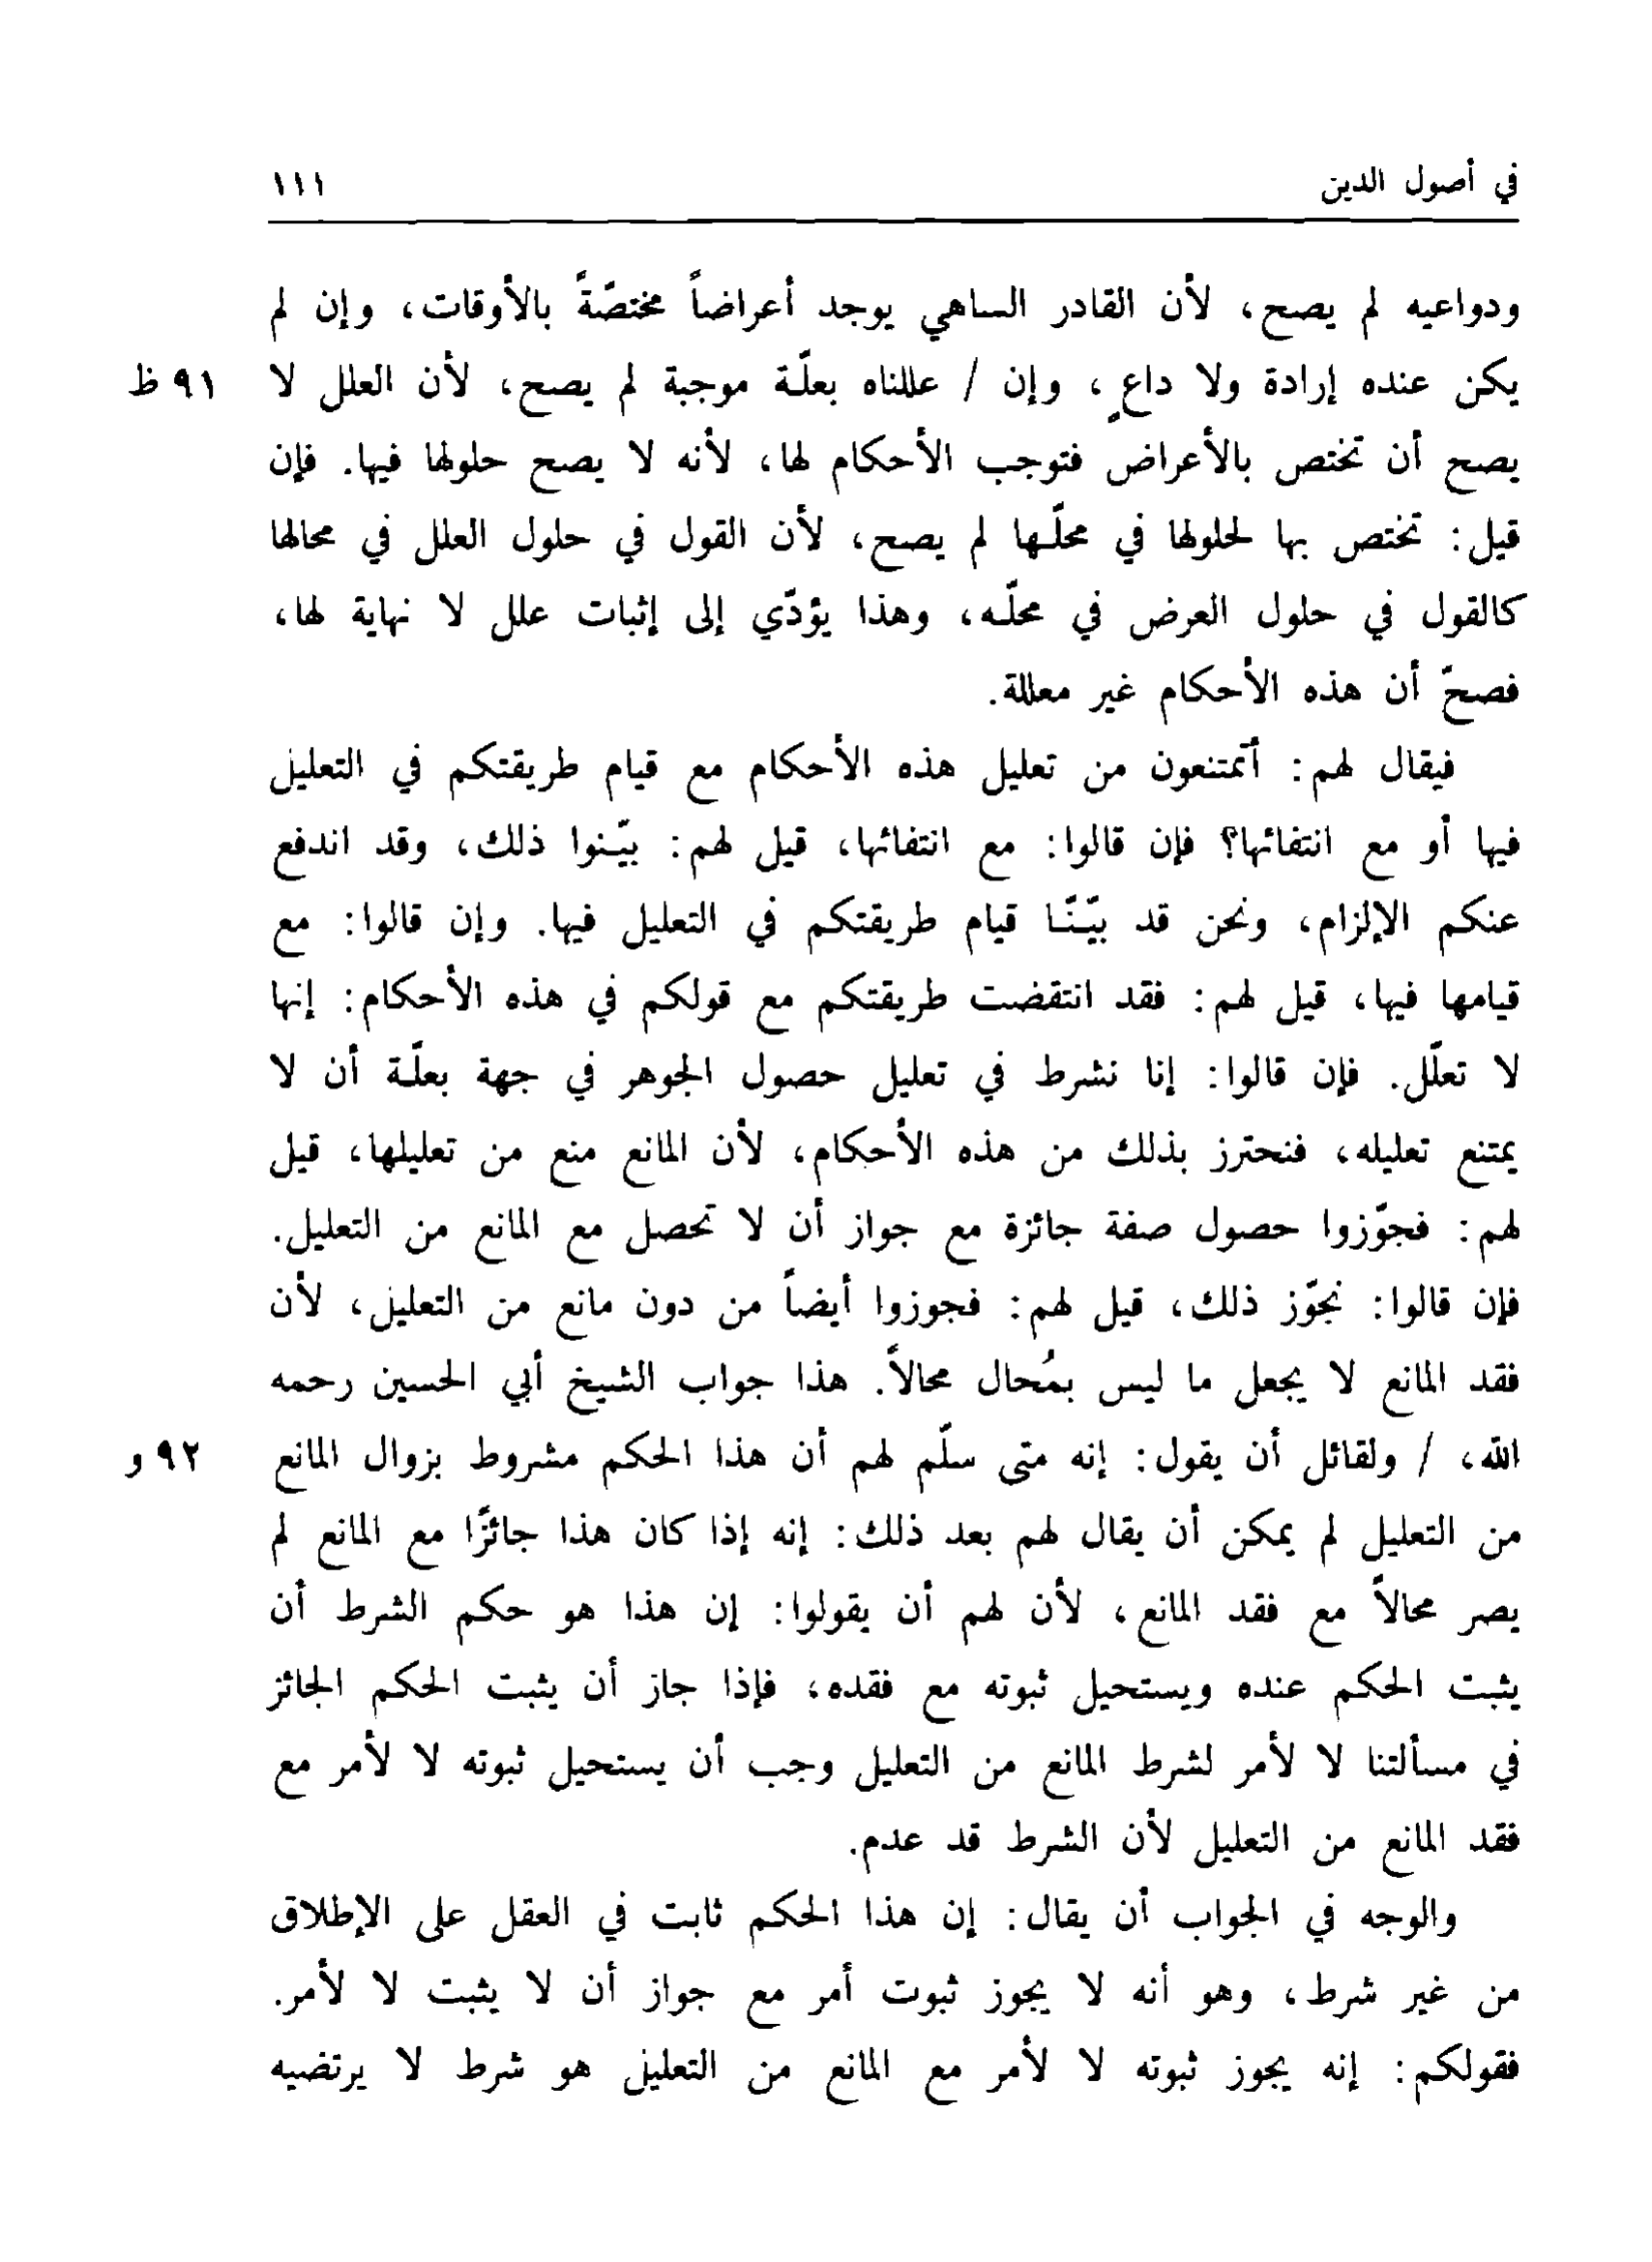 في أصول الدين ١١١
ودواعيه لم يصح، لأن القادر الساهي يوجد أعراضاً مختصّةً بالأوقات، وإن لم
يكن عنده إرادة ولا داعٍ، وإن / عللناه بعلّة موجبة لم يصح، لأن العلل لا ٩١ ظ
يصح أن تختص بالأعراض فتوجب الأحكام لها، لأنه لا يصح حلولها فيها. فإن
قيل: تختص بها لحلولها في محلّها لم يصح، لأن القول في حلول العلل في محالها
كالقول في حلول العرض في محلّه، وهذا يؤدّي إلى إثبات علل لا نهاية لها،
فصحّ أن هذه الأحكام غير معللة.
فيقال لهم: أتمتنعون من تعليل هذه الأحكام مع قيام طريقتكم في التعليل
فيها أو مع انتفائها؟ فإن قالوا: مع انتفائها، قيل لهم: بيّنوا ذلك، وقد اندفع
عنكم الإلزام، ونحن قد بيّنّا قيام طريقتكم في التعليل فيها. وإن قالوا: مع
قيامها فيها، قيل لهم: فقد انتقضت طريقتكم مع قولكم في هذه الأحكام: إنها
لا تعلّل. فإن قالوا: إنا نشرط في تعليل حصول الجوهر في جهة بعلّة أن لا
يمتنع تعليله، فنحترز بذلك من هذه الأحكام، لأن المانع منع من تعليلها، قيل
لهم: فجوّزوا حصول صفة جائزة مع جواز أن لا تحصل مع المانع من التعليل.
فإن قالوا: نجوّز ذلك، قيل لهم: فجوزوا أيضاً من دون مانع من التعليل، لأن
فقد المانع لا يجعل ما ليس بمُحال محالاً. هذا جواب الشيخ أبي الحسين رحمه
الله، / ولقائل أن يقول: إنه متى سلّم لهم أن هذا الحكم مشروط بزوال المانع ٩٢ و
من التعليل لم يمكن أن يقال لهم بعد ذلك: إنه إذا كان هذا جائزًا مع المانع لم
يصر محالاً مع فقد المانع، لأن لهم أن يقولوا: إن هذا هو حكم الشرط أن
يثبت الحكم عنده ويستحيل ثبوته مع فقده، فإذا جاز أن يثبت الحكم الجائز
في مسألتنا لا لأمر لشرط المانع من التعليل وجب أن يستحيل ثبوته لا لأمر مع
فقد المانع من التعليل لأن الشرط قد عدم.
والوجه في الجواب أن يقال: إن هذا الحكم ثابت في العقل على الإطلاق
من غير شرط، وهو أنه لا يجوز ثبوت أمر مع جواز أن لا يثبت لا لأمر.
فقولكم: إنه يجوز ثبوته لا لأمر مع المانع من التعليل هو شرط لا يرتضيه